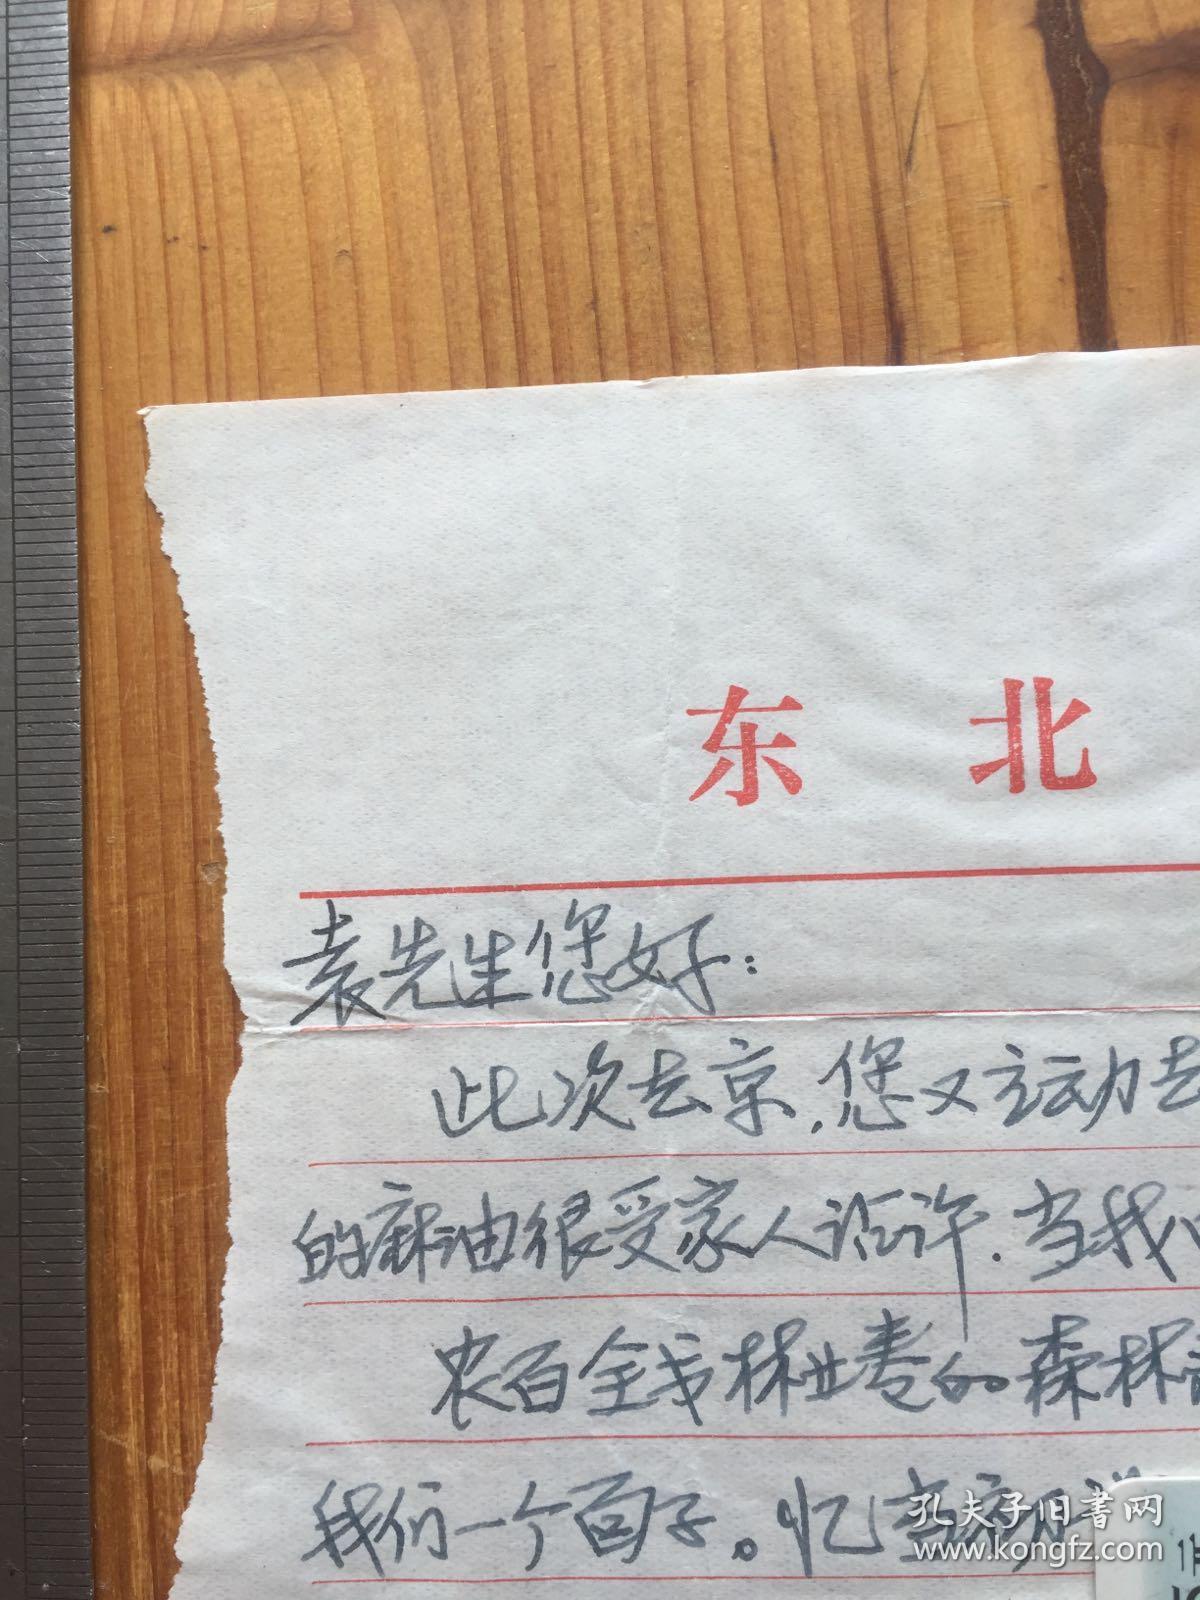 东北
袁先生您好：
此次去京，您又主动去
的麻油很受家人讚许．当我
农百全书林业卷的森林
我们一个面子。忆当初
孔夫子旧書网
www.kongfz.com